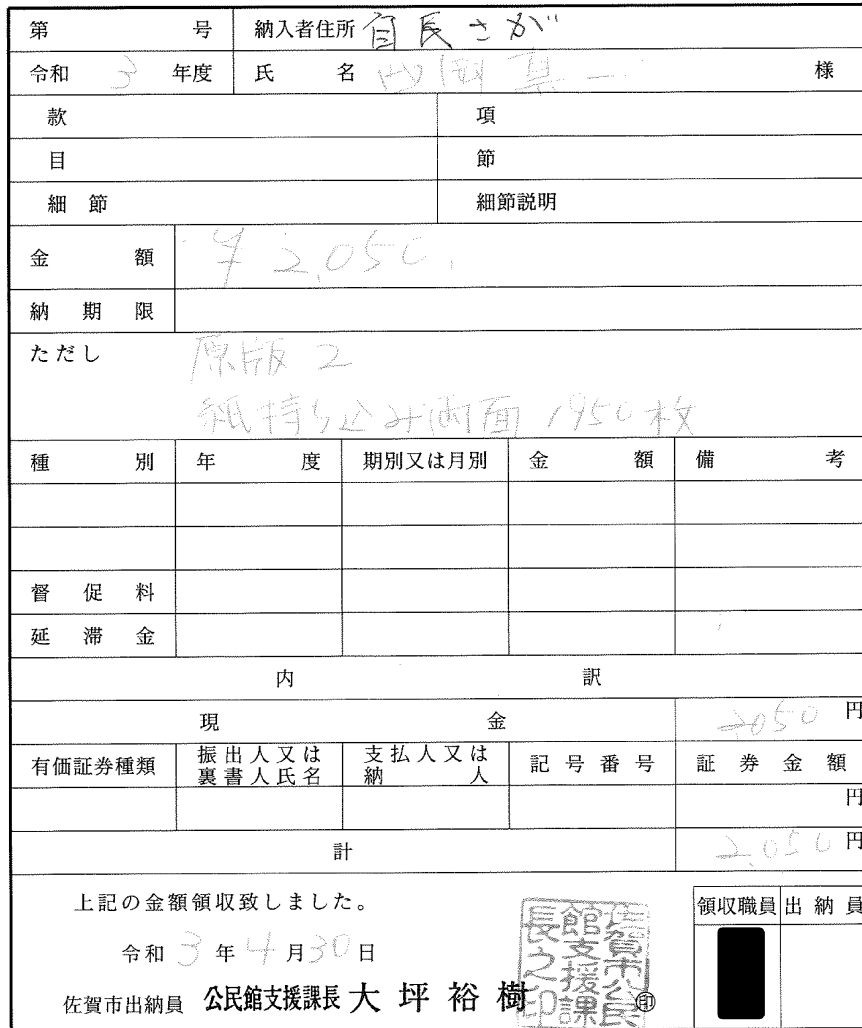 第 号 納入者住所 自民さが
令和 3 年度 氏 名 山岡真一 様
款 項
目 節
細 節 細節説明
金 額 ¥2,050.
納 期 限
ただし 原版 2
紙持ち込み両面 1950枚
種 別 年 度 期別又は月別 金 額 備 考
督 促 料
延 滞 金
内 訳
現 金 2050 円
有価証券種類 振出人又は裏書人氏名 支払人又は納人 記号番号 証券金額
円
計 2,050 円
上記の金額領収致しました。
領収職員 出納員
令和 3 年 4 月 30 日
佐賀市出納員 公民館支援課長 大坪裕樹 印
佐賀市公民館支援課長之印